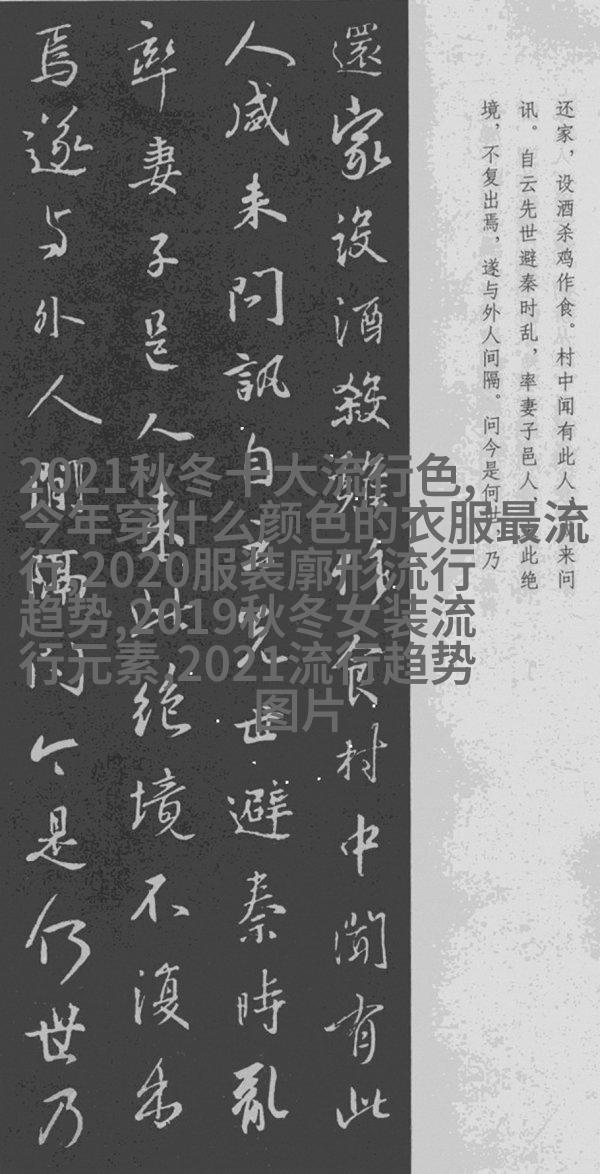 还家，设酒杀鸡作食。村中闻有此人，咸来问
讯。自云先世避秦时乱，率妻子邑人，来此绝
境，不复出焉，遂与外人间隔。问今是何世，乃
還家設酒殺雞作食村中聞有此
人咸来問訊自云先世避秦時亂
率妻子邑人来此絶境不復出
焉遂与外人間隔問今是何世乃
2021秋冬十大流行色,
今年穿什么颜色的衣服最流
行,2020服装廓形流行
趋势,2019秋冬女装流
行元素,2021流行趋势
图片